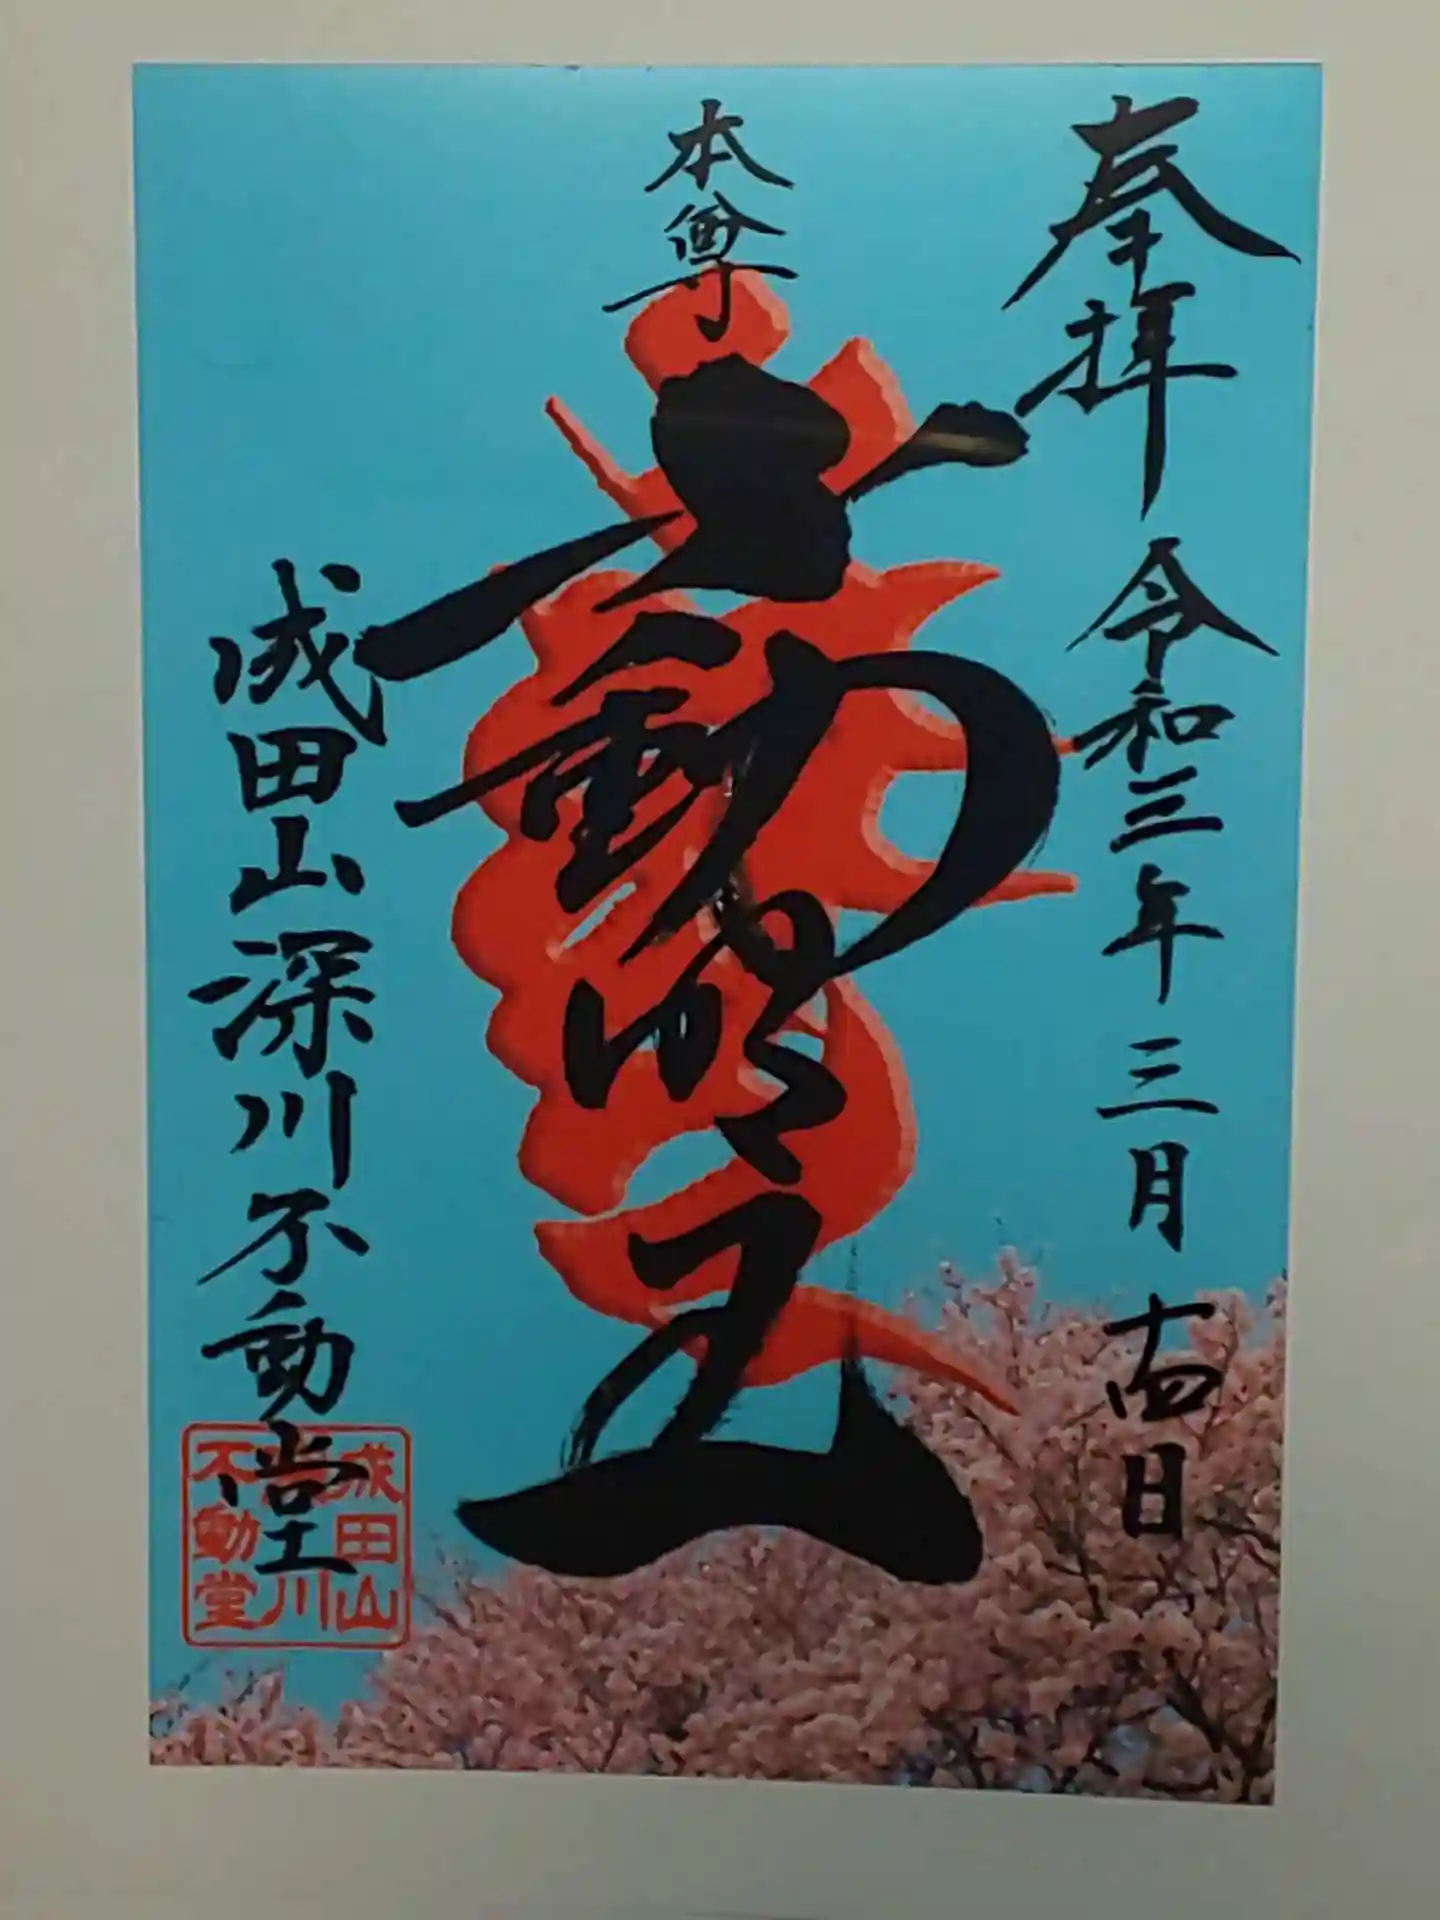 奉拝 令和三年三月十四日
本尊
不動明王
成田山深川不動堂
成田山
川
不動堂